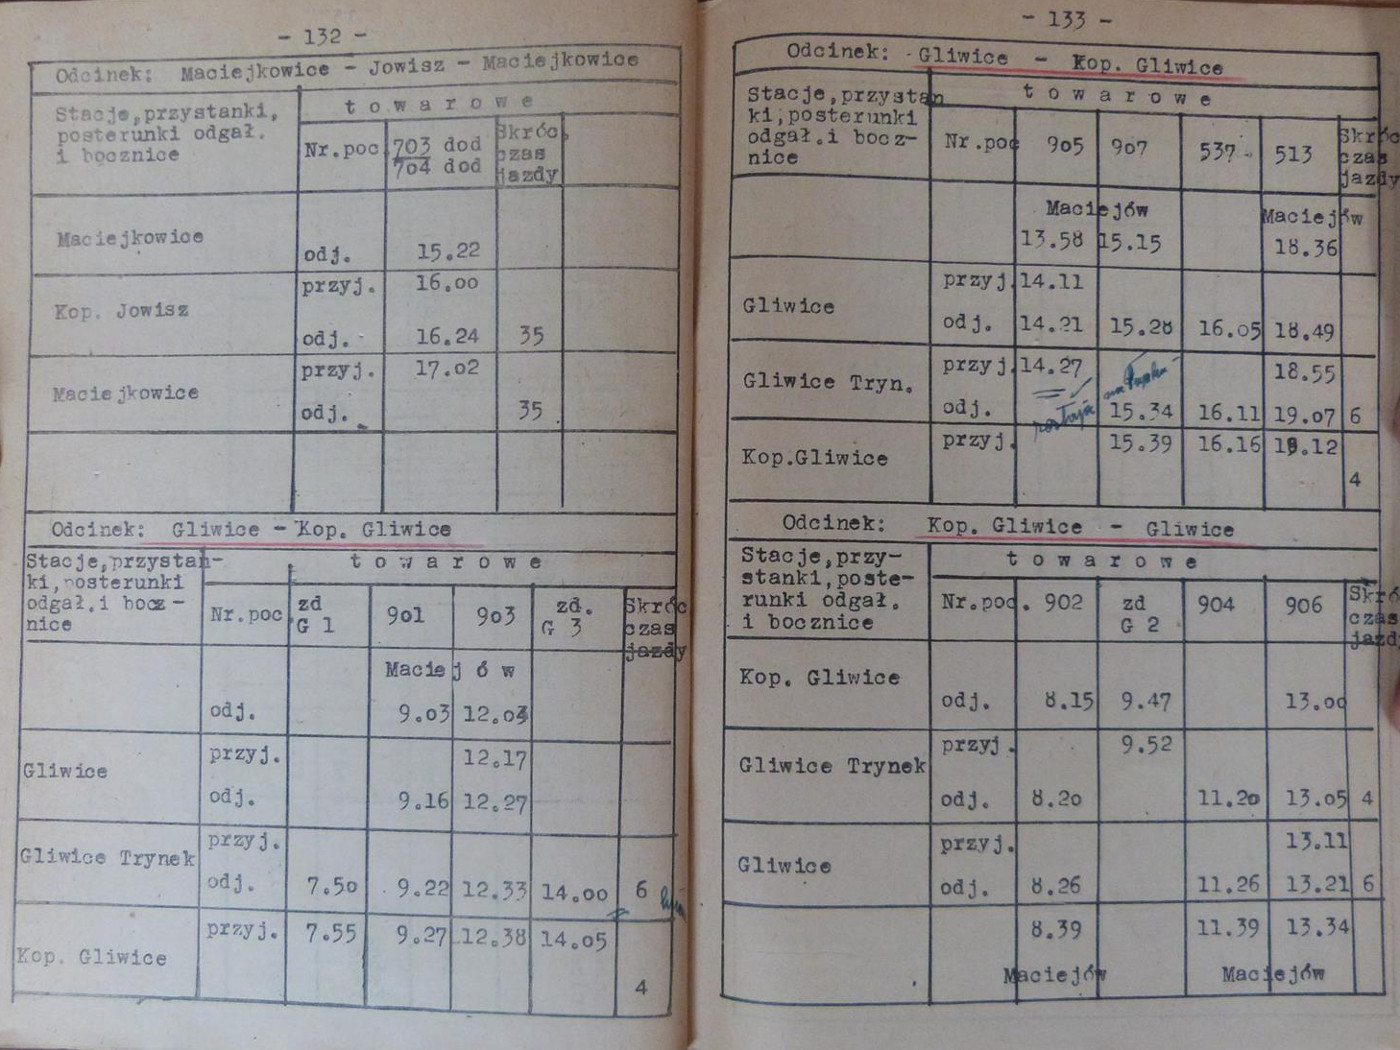 - 132 -
Odcinek: Maciejkowice - Jowisz - Maciejkowice
Stacje,przystanki, t o w a r o w e
posterunki odgał. Nr.poc 703 dod Skróc.
i bocznice 704 dod czas
jazdy
Maciejkowice
odj. 15.22
przyj. 16.00
Kop. Jowisz
odj. 16.24 35
przyj. 17.02
Maciejkowice
odj. 35
Odcinek: Gliwice - Kop. Gliwice
Stacje,przystan- t o w a r o w e
ki,posterunki
odgał.i bocz- Nr.poc. zd 901 903 zd. Skróc
nice G 1 G 3 czas
jazdy
Maciej ó w
odj. 9.03 12.03
przyj. 12.17
Gliwice
odj. 9.16 12.27
przyj.
Gliwice Trynek
odj. 7.50 9.22 12.33 14.00 6
przyj. 7.55 9.27 12.38 14.05
Kop. Gliwice
4
- 133 -
Odcinek: Gliwice - Kop. Gliwice
Stacje,przystan t o w a r o w e
ki,posterunki
odgał.i bocz- Nr.poc 905 907 537 513 Skróc
nice czas
jazdy
Maciejów Maciejów
13.58 15.15 18.36
przyj. 14.11
Gliwice
odj. 14.21 15.28 16.05 18.49
przyj. 14.27 18.55
Gliwice Tryn.
odj. 15.34 16.11 19.07 6
przyj. 15.39 16.16 19.12
Kop.Gliwice
4
Odcinek: Kop. Gliwice - Gliwice
Stacje,przy- t o w a r o w e
stanki,poste-
runki odgał. Nr.poc. 902 zd 904 906 Skró
i bocznice G 2 czas
jazdy
Kop. Gliwice
odj. 8.15 9.47 13.00
przyj. 9.52
Gliwice Trynek
odj. 8.20 11.20 13.05 4
przyj. 13.11
Gliwice
odj. 8.26 11.26 13.21 6
8.39 11.39 13.34
Maciejów Maciejów